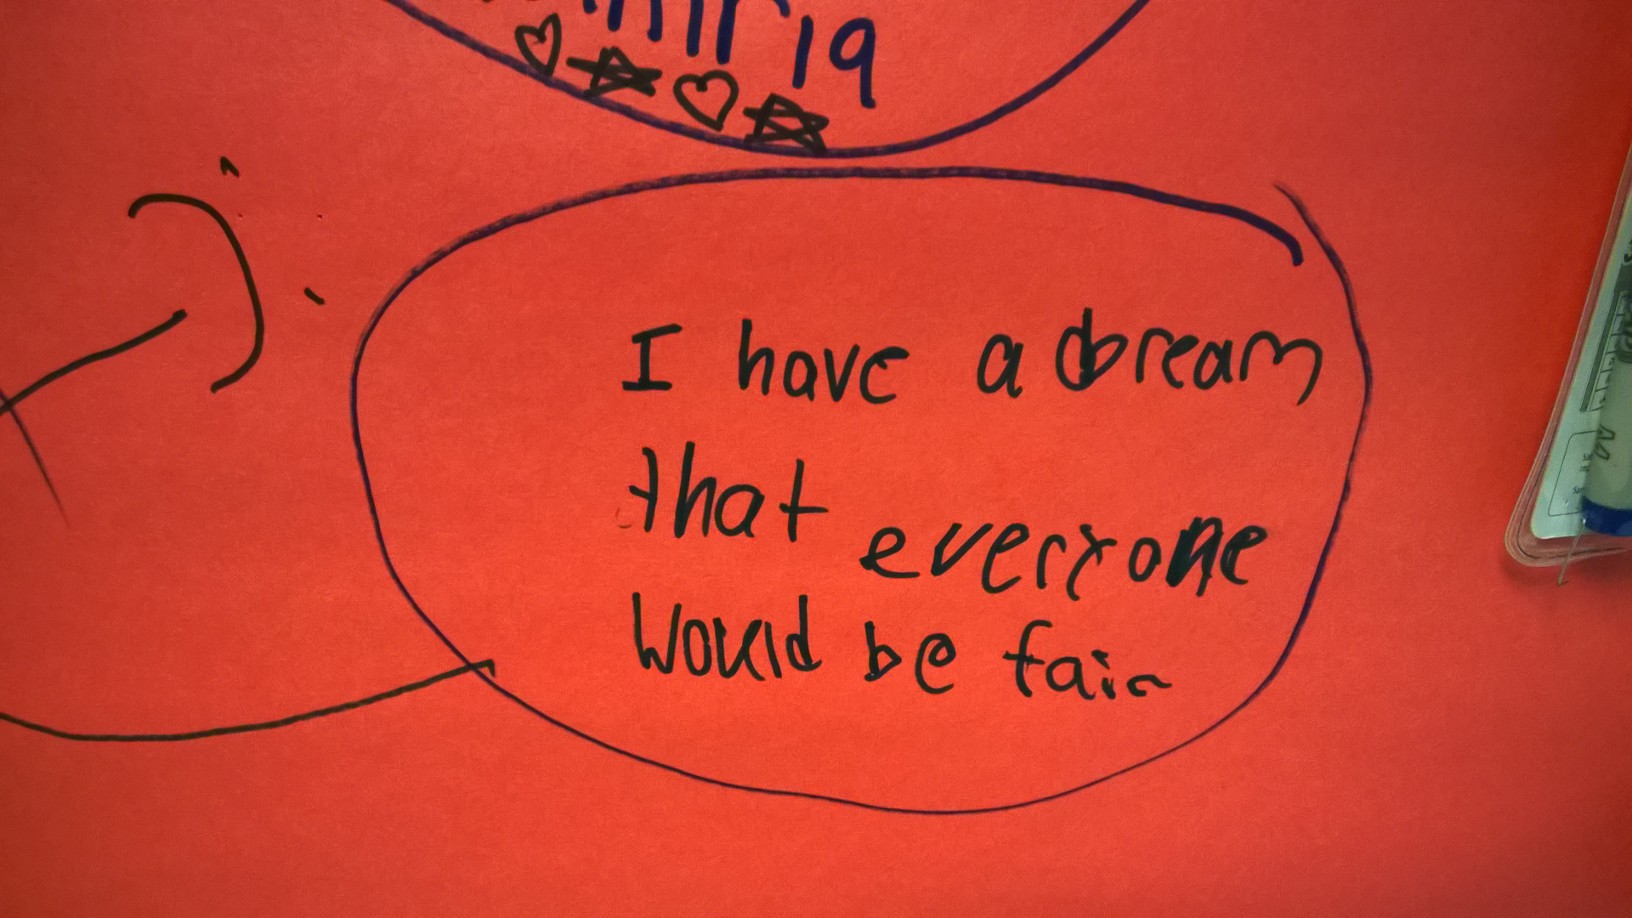 I have a dream
that everyone
would be fair